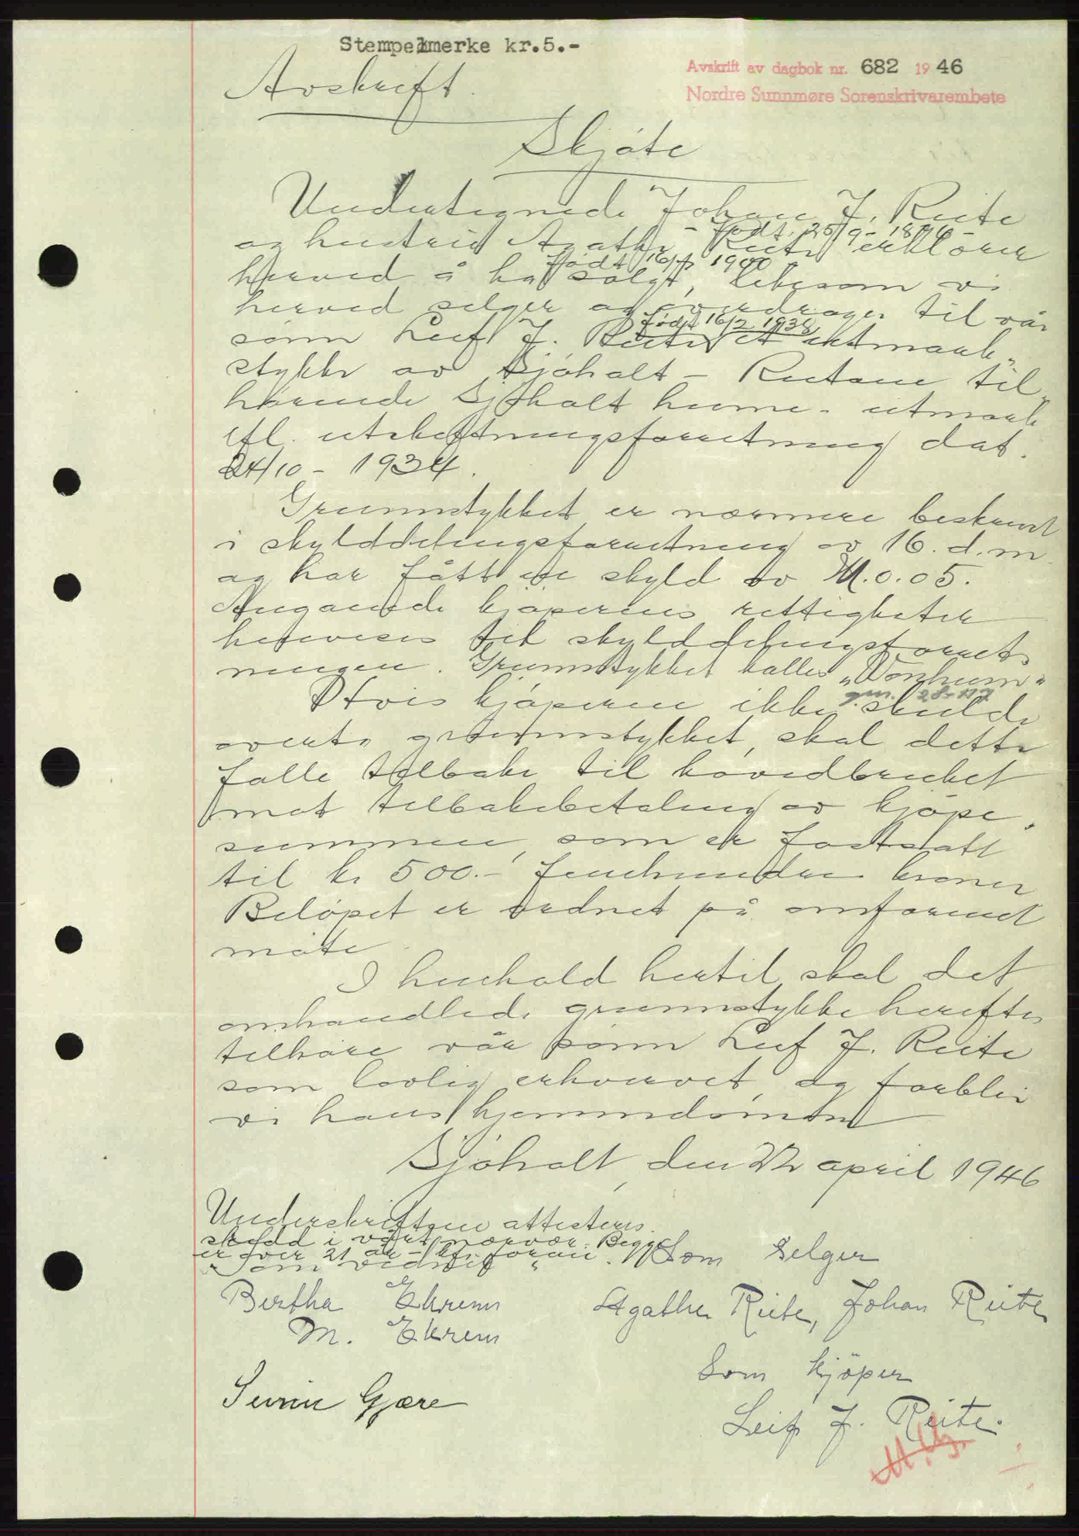 Stempelmerke kr.5.-
Avskrift av dagbok nr. 682 1946
Nordre Sunnmøre Sorenskrivarembete
Avskrift.
Skjøte
Undertegnede Johan J. Reite
født 25/9-1896
og hustru Agathe Reite erklærer
født 16/7 1900
herved å ha solgt, likesom vi
herved selger og overdrager til vår
født 16/2 1938
sønn Leif J. Reite et utmark-
stykke av Sjøholt - Reitane til
hørende Sjøholt heime- utmark
ifl. utskiftningsforretning dat.
24/10 - 1934.
Grunnstykket er nærmere beskrevet
i skylddelingsforretning av 16. d.m
og har fått en skyld av M.0.05.
Angående kjøperens rettigheter
henvises til skylddelingsforret-
ningen. Grunnstykket kalles "Vonheim"
gnr. 28-117
Hvis kjøperen ikke skulde
overta grunnstykket, skal dette
falle tilbake til hovedbruket
mot tilbakebetaling av kjøpe-
summen, som er fastsatt
til kr 500.- femhundre kroner
Beløpet er ordnet på omforenet
måte.
I henhold hertil skal det
omhandlede grunnstykke herefter
tilhøre vår sønn Leif J. Reite
som lovlig erhvervet, og forblir
vi hans hjemmelsmenn
Sjøholt, den 22 april 1946
Underskriftene attesteres
skjedd i vårt nærvær. Begge
er over 21 år
Som selger
Bertha Ekrem
Agathe Reite, Johan Reite
M. Ekrem
Som kjøper
Gjære
Leif J. Reite.